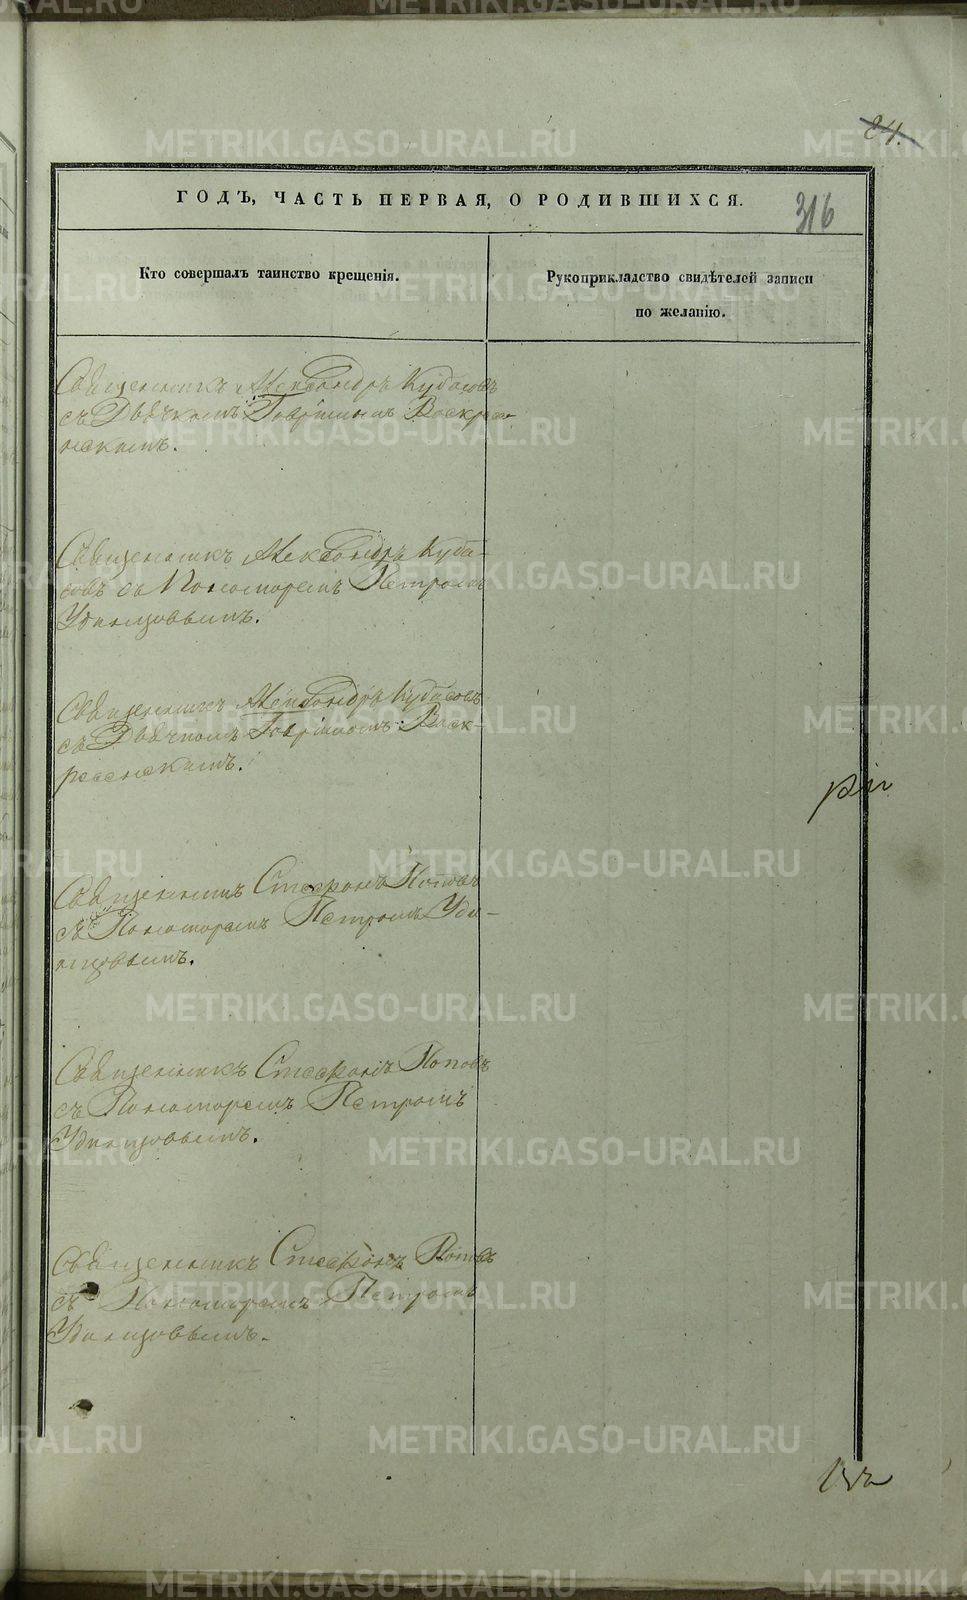 84.
316
ГОДЪ, ЧАСТЬ ПЕРВАЯ, О РОДИВШИХСЯ.
Кто совершалъ таинство крещенія.
Рукоприкладство свидѣтелей записи
по желанію.
Священникъ Александръ Кубасовъ
съ Дьячкомъ Гавріиломъ Воскресе-
нскимъ.
Священникъ Александръ Куба-
совъ съ Пономоремъ Петромъ
Удинцовымъ.
Священникъ Александръ Кубасовъ
съ Дьячкомъ Гавріиломъ Воск-
ресенскимъ.
Священникъ Стефанъ Поповъ
съ Пономоремъ Петромъ Уди-
нцовымъ.
Священникъ Стефанъ Поповъ
съ Пономоремъ Петромъ
Удинцовымъ.
Священникъ Стефанъ Поповъ
съ Пономоремъ Петромъ
Удинцовымъ.
METRIKI.GASO-URAL.RU